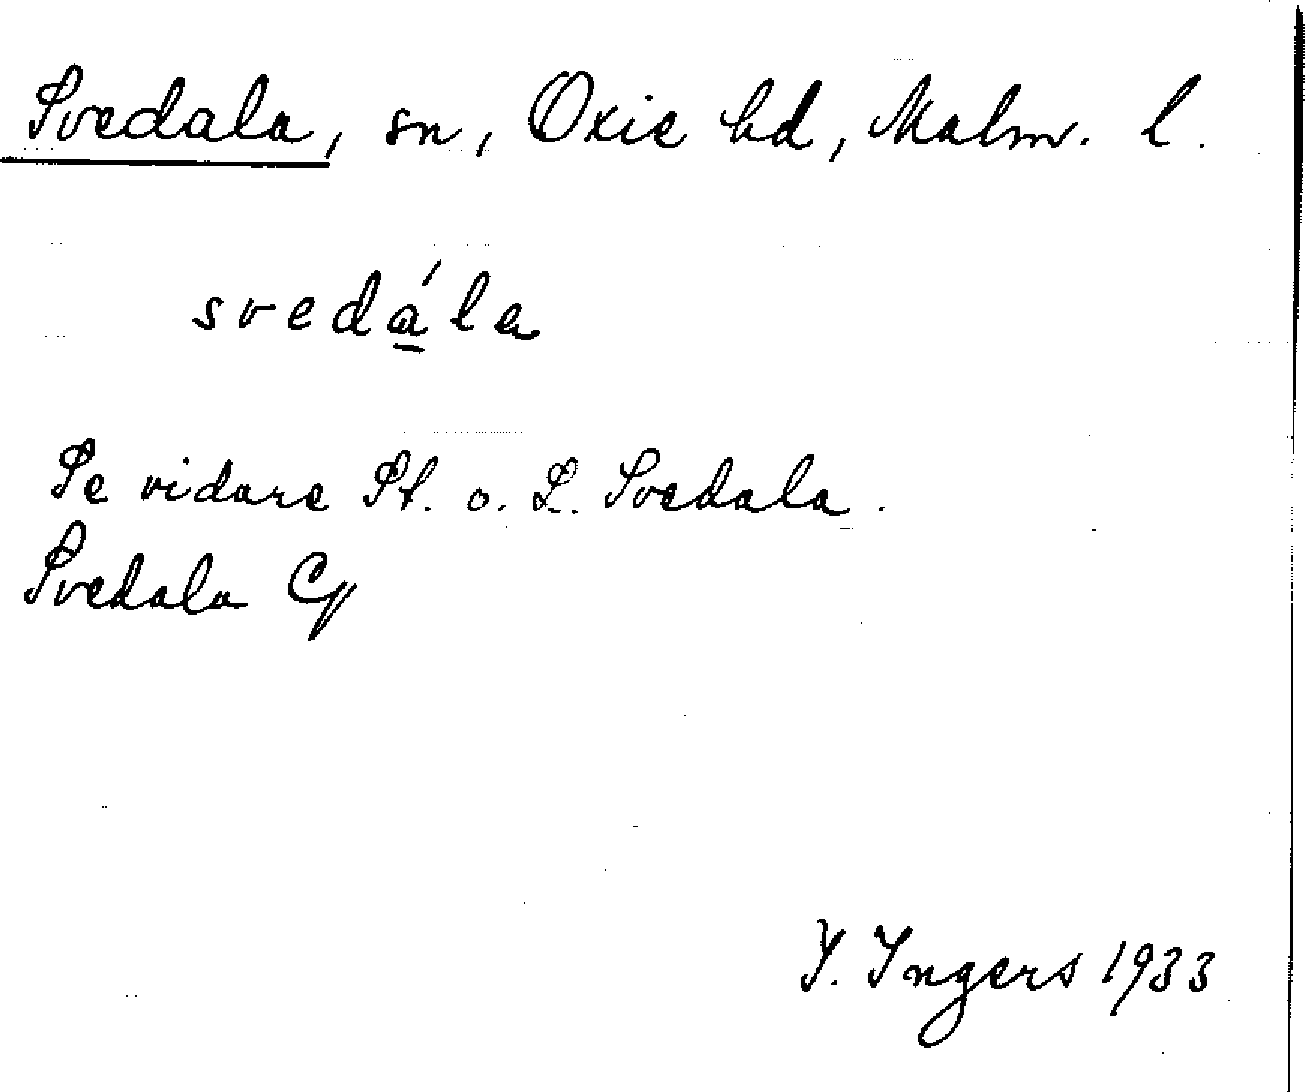 Svedala, sn, Oxie hd, Malm. l.
svedála
Se vidare St. o. L. Svedala.
Svedala
I. Ingers 1933